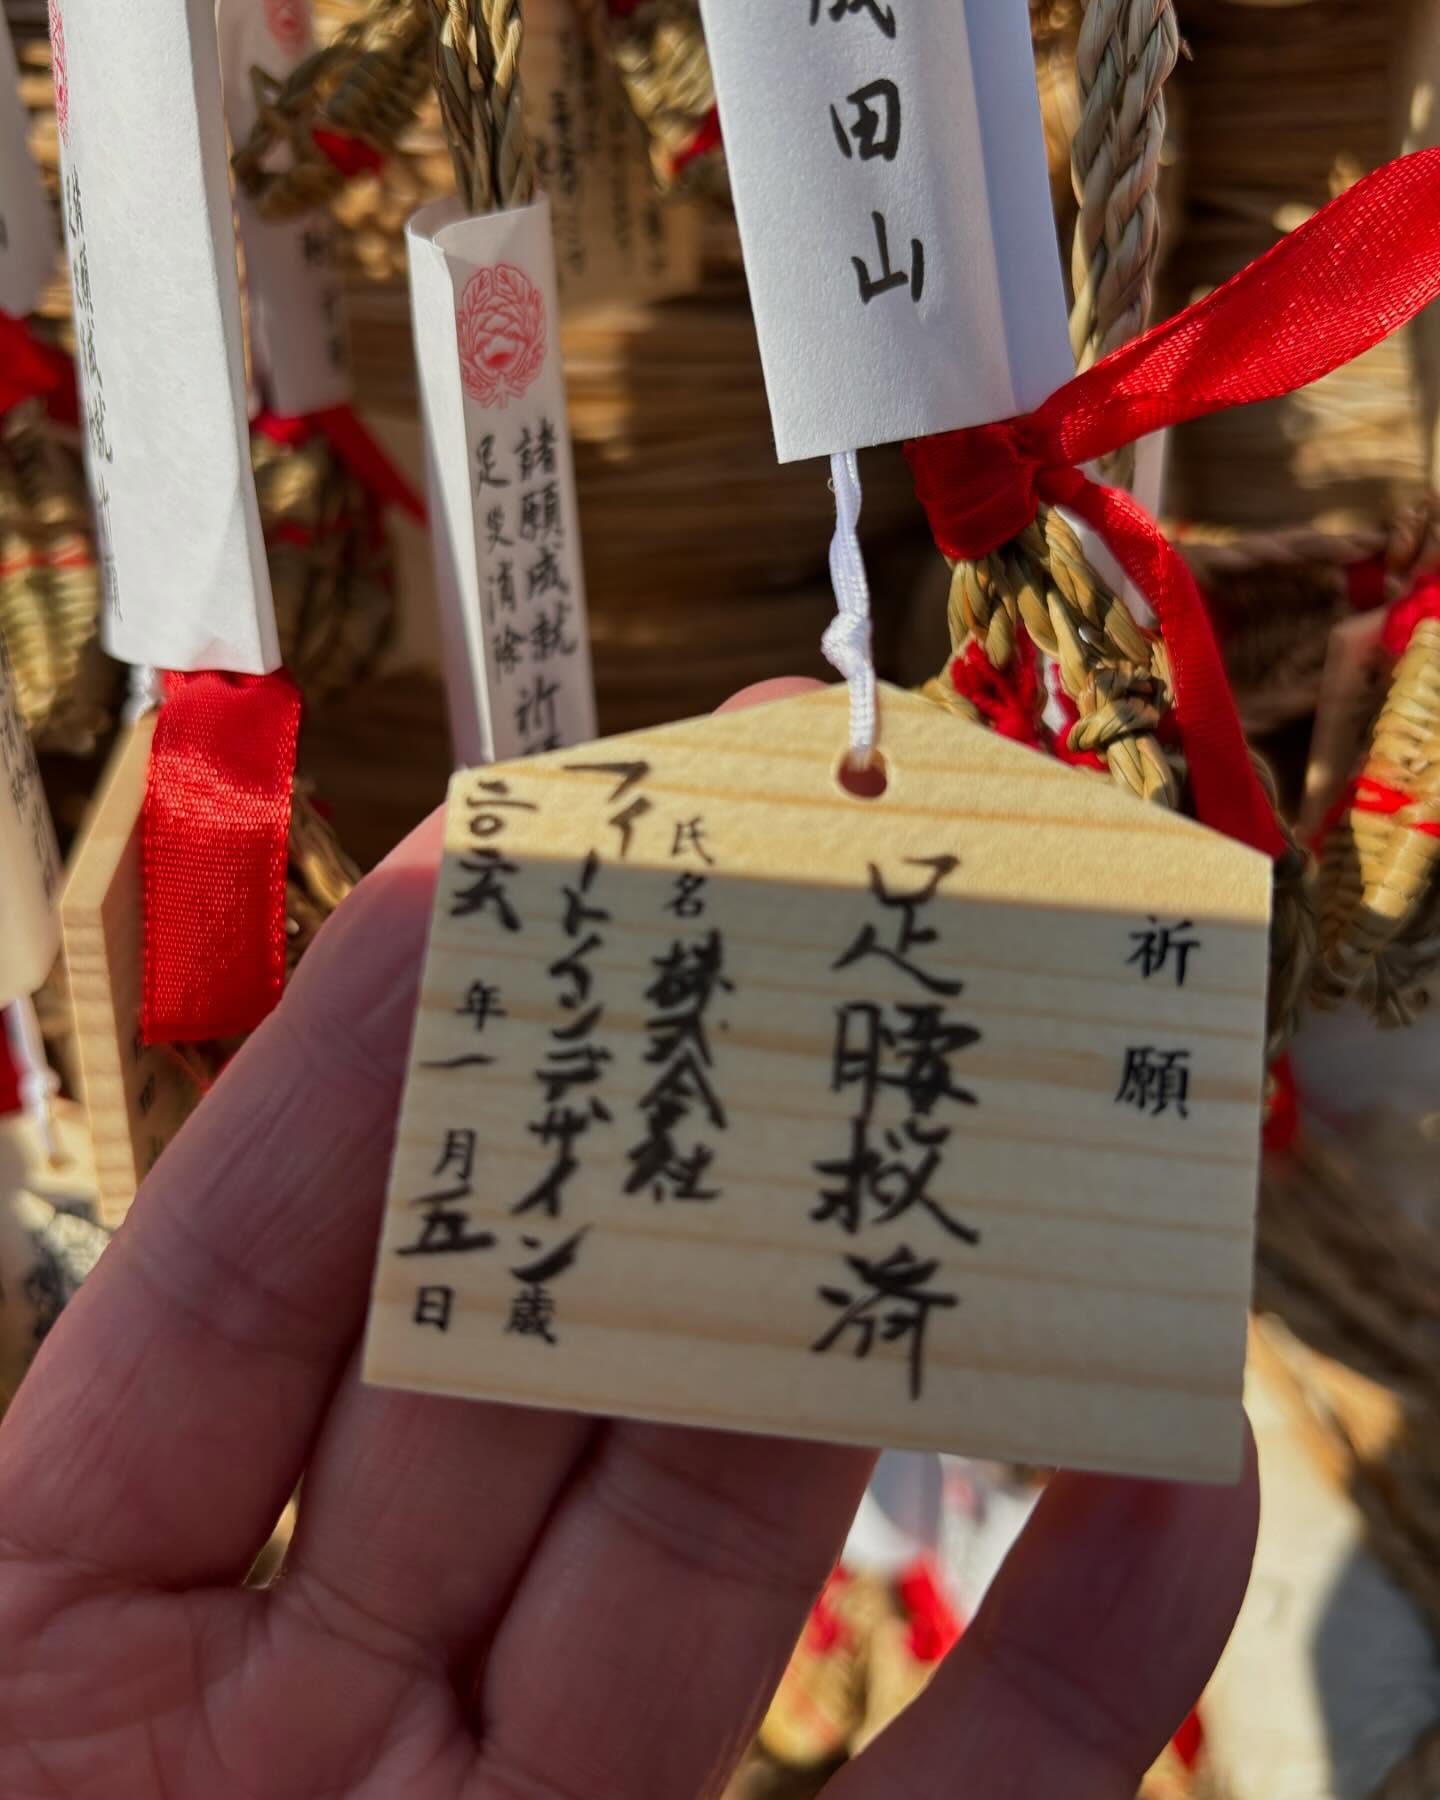 成田山
諸願成就祈
足災消除
祈願
足腰救済
氏名 株式会社
フィートインデザイン 歳
二〇二六年一月五日